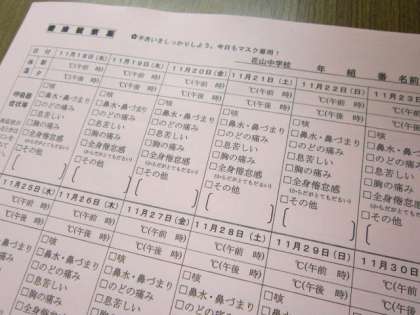 健康観察票
☆手洗いをしっかりしよう。今日もマスク着用！
花山中学校 年 組 番 名前
日付 11月18日(水) 11月19日(木) 11月20日(金) 11月21日(土) 11月22日(日) 11月23日
℃(午前 時) ℃(午前 時) ℃(午前 時) ℃(午前 時) ℃(午前 時) ℃(午前
℃(午後 時) ℃(午後 時) ℃(午後 時) ℃(午後 時) ℃(午後 時) ℃(午後
□咳 □咳 □咳 □咳 □咳 □咳
□鼻水・鼻づまり □鼻水・鼻づまり □鼻水・鼻づまり □鼻水・鼻づまり □鼻水・鼻づまり □鼻水・鼻
□のどの痛み □のどの痛み □のどの痛み □のどの痛み □のどの痛み □のどの痛
□息苦しい □息苦しい □息苦しい □息苦しい □息苦しい □息苦しい
□胸の痛み □胸の痛み □胸の痛み □胸の痛み □胸の痛み □胸の痛み
□全身倦怠感 □全身倦怠感 □全身倦怠感 □全身倦怠感 □全身倦怠感 □全身倦怠
(からだがとてもだるい) (からだがとてもだるい) (からだがとてもだるい) (からだがとてもだるい) (からだがとてもだるい)
□その他 □その他 □その他 □その他 □その他 □その他
11月25日(水) 11月26日(木) 11月27日(金) 11月28日(土) 11月29日(日) 11月30日
℃(午前 時) ℃(午前 時) ℃(午前 時) ℃(午前 時) ℃(午前 時) ℃(午前
℃(午後 時) ℃(午後 時) ℃(午後 時) ℃(午後 時) ℃(午後
□咳 □咳 □咳 □咳
□鼻水・鼻づまり □鼻水・鼻づまり □鼻水・鼻づまり □鼻水・鼻づまり
□のどの痛み □のどの痛み □のどの痛み
□息苦しい □息苦しい
□胸の痛み